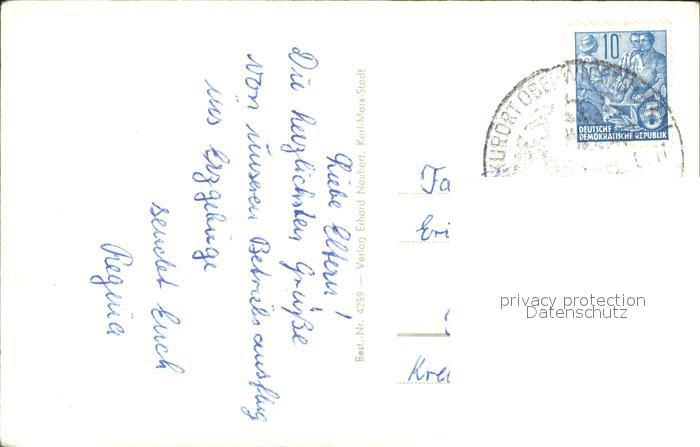 Liebe Eltern!
Die herzlichsten Grüße
von unseren Betriebsausflug
ins Erzgebirge
sendet Euch
Regina
Best.-Nr. 4259 — Verlag Erhard Neubert, Karl-Marx-Stadt
10
5
DEUTSCHE
DEMOKRATISCHE REPUBLIK
KURORT
privacy protection
Datenschutz